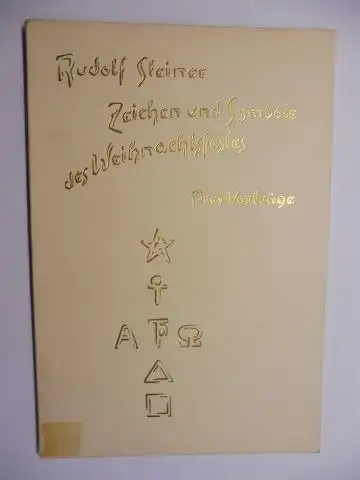 Rudolf Steiner
Zeichen und Symbole
des Weihnachtsfestes
Drei Vorträge
A Ω